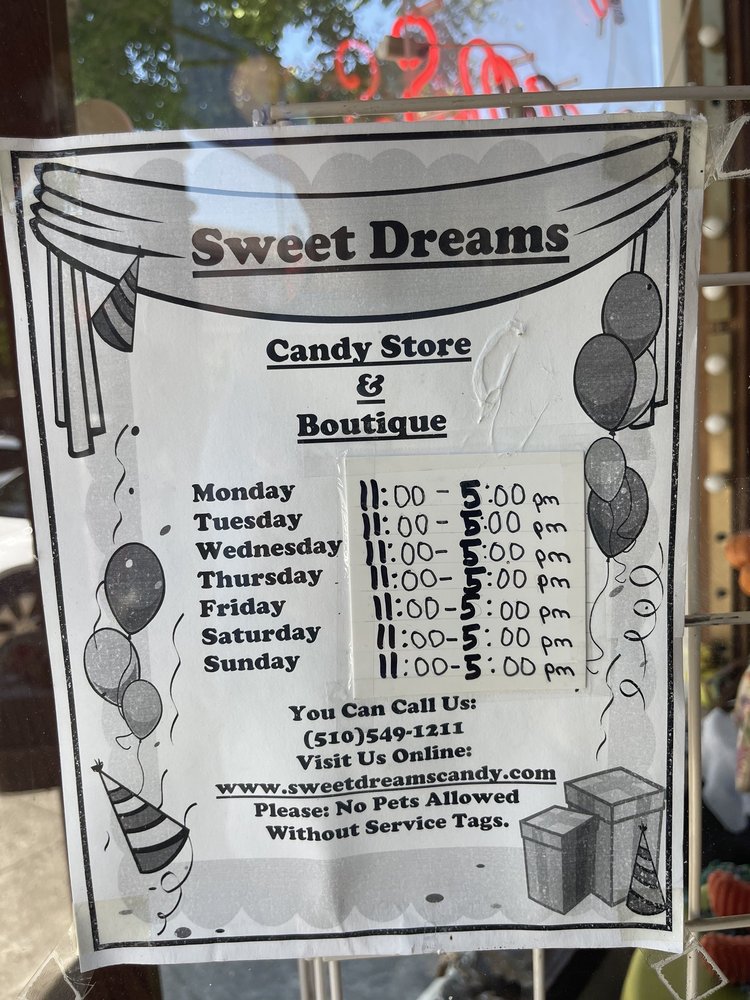 Sweet Dreams
Candy Store
&
Boutique
Monday 11:00 - 5:00 pm
Tuesday 11:00 - 5:00 pm
Wednesday 11:00- 5:00 pm
Thursday 11:00- 5:00 pm
Friday 11:00-5:00 pm
Saturday 11:00-5:00 pm
Sunday 11:00-5:00 pm
You Can Call Us:
(510)549-1211
Visit Us Online:
www.sweetdreamscandy.com
Please: No Pets Allowed
Without Service Tags.